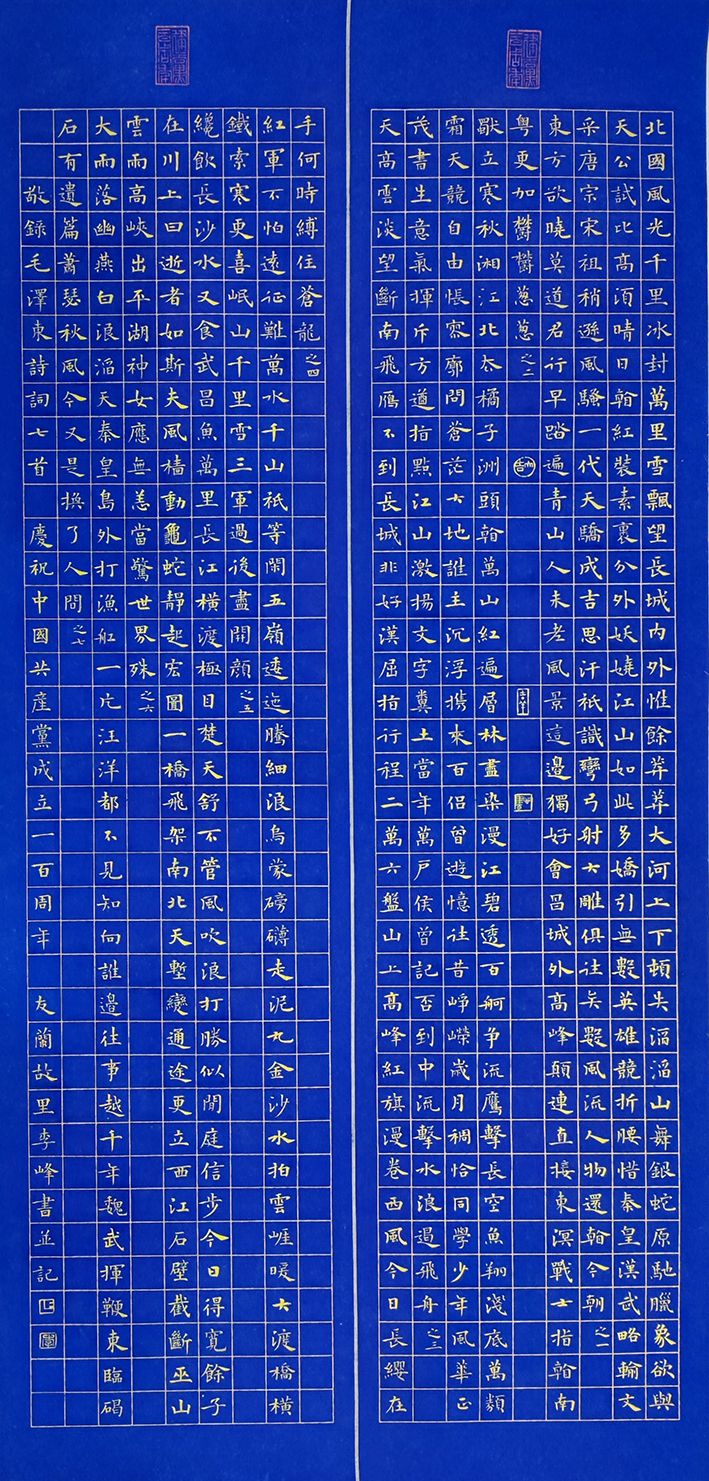 北國風光千里冰封萬里雪飄望長城內外惟餘莽莽大河上下頓失滔滔山舞銀蛇原馳臘象欲與
天公試比高須晴日看紅裝素裹分外妖嬈江山如此多嬌引無數英雄競折腰惜秦皇漢武略輸文
采唐宗宋祖稍遜風騷一代天驕成吉思汗祇識彎弓射大雕俱往矣數風流人物還看今朝之一
東方欲曉莫道君行早踏遍青山人未老風景這邊獨好會昌城外高峰顛連直接東溟戰士指看南
粵更加鬱鬱蔥蔥之二
獨立寒秋湘江北去橘子洲頭看萬山紅遍層林盡染漫江碧透百舸爭流鷹擊長空魚翔淺底萬類
霜天競自由悵寥廓問蒼茫大地誰主沉浮攜來百侶曾遊憶往昔崢嶸歲月稠恰同學少年風華正
茂書生意氣揮斥方遒指點江山激揚文字糞土當年萬戶侯曾記否到中流擊水浪遏飛舟之三
天高雲淡望斷南飛雁不到長城非好漢屈指行程二萬六盤山上高峰紅旗漫卷西風今日長纓在
手何時縛住蒼龍之四
紅軍不怕遠征難萬水千山祇等閑五嶺逶迤騰細浪烏蒙磅礴走泥丸金沙水拍雲崖暖大渡橋橫
鐵索寒更喜岷山千里雪三軍過後盡開顏之五
纔飲長沙水又食武昌魚萬里長江橫渡極目楚天舒不管風吹浪打勝似閒庭信步今日得寬餘子
在川上曰逝者如斯夫風檣動龜蛇靜起宏圖一橋飛架南北天塹變通途更立西江石壁截斷巫山
雲雨高峽出平湖神女應無恙當驚世界殊之六
大雨落幽燕白浪滔天秦皇島外打漁船一片汪洋都不見知向誰邊往事越千年魏武揮鞭東臨碣
石有遺篇蕭瑟秋風今又是換了人間之七
敬錄毛澤東詩詞七首 慶祝中國共產黨成立一百周年 友蘭故里李峰書並記